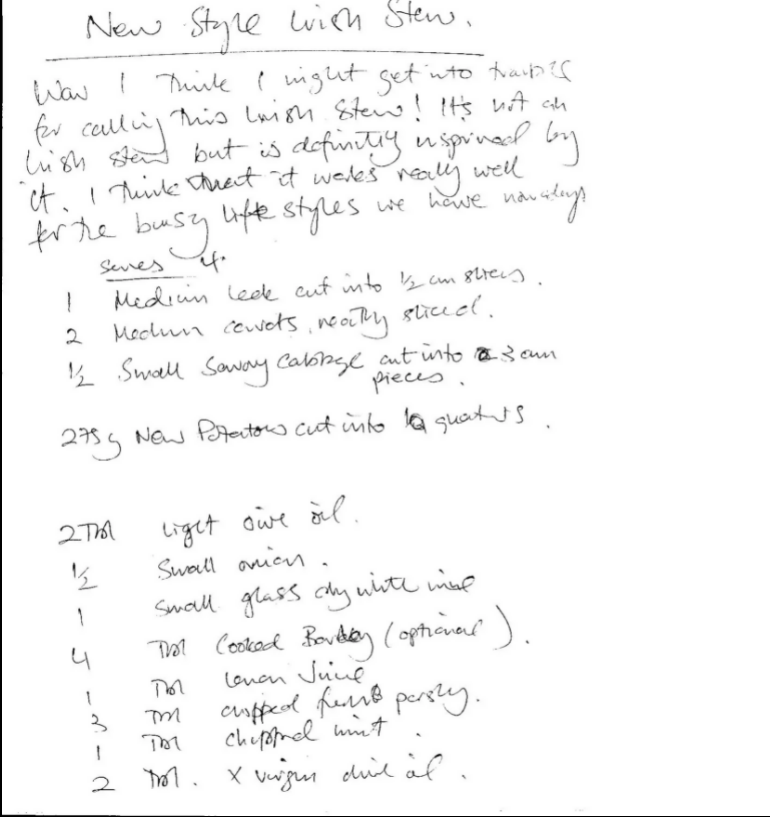 New Style Irish Stew.
Wow I Think I might get into trouble
for calling This Irish Stew! It's not an
Irish stew but is definitly inspired by
it. I Think that it works really well
for the busy life styles we have nowadays
Serves 4.
1 Medium leek cut into 1/2 cm slices.
2 Medium carrots, neatly sliced.
1/2 Small Savoy Cabbage cut into 3 cm
pieces.
275g New Potatoes cut into quarters.
2 Tbl light olive oil.
1/2 Small onion.
1 Small glass dry white wine
4 Tbl Cooked Barley (optional).
1 Tbl lemon Juice
3 Tbl chopped fresh parsley.
1 Tbl chopped mint.
2 Tbl. X virgin olive oil.